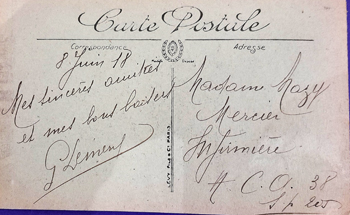 Carte Postale
Correspondance
Adresse
8 Juin 18
Mes sincères amitiés
et mes bons baisers
Madame Mazy
Mercier
Infirmière
H C O 38
S p 205